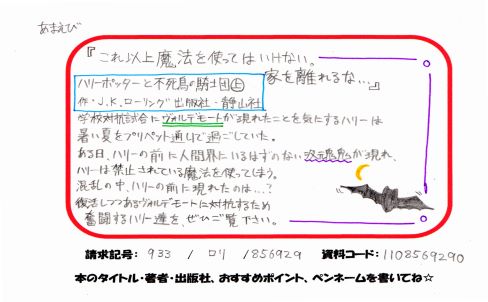 あまえび
『これ以上魔法を使ってはいけない。
家を離れるな…』
ハリーポッターと不死鳥の騎士団㊤
作・J.K.ローリング 出版社・静山社
学校対抗試合にヴォルデモートが現れたことを気にするハリーは
暑い夏をプリベット通りで過ごしていた。
ある日、ハリーの前に人間界にいるはずのない吸魂鬼が現れ、
ハリーは禁止されている魔法を使ってしまう。
混乱の中、ハリーの前に現れたのは…?
復活しつつあるヴォルデモートに対抗するため
奮闘するハリー達を、ぜひご覧下さい。
請求記号: 933 / ロリ /856929 資料コード:1108569290
本のタイトル・著者・出版社、おすすめポイント、ペンネームを書いてね☆